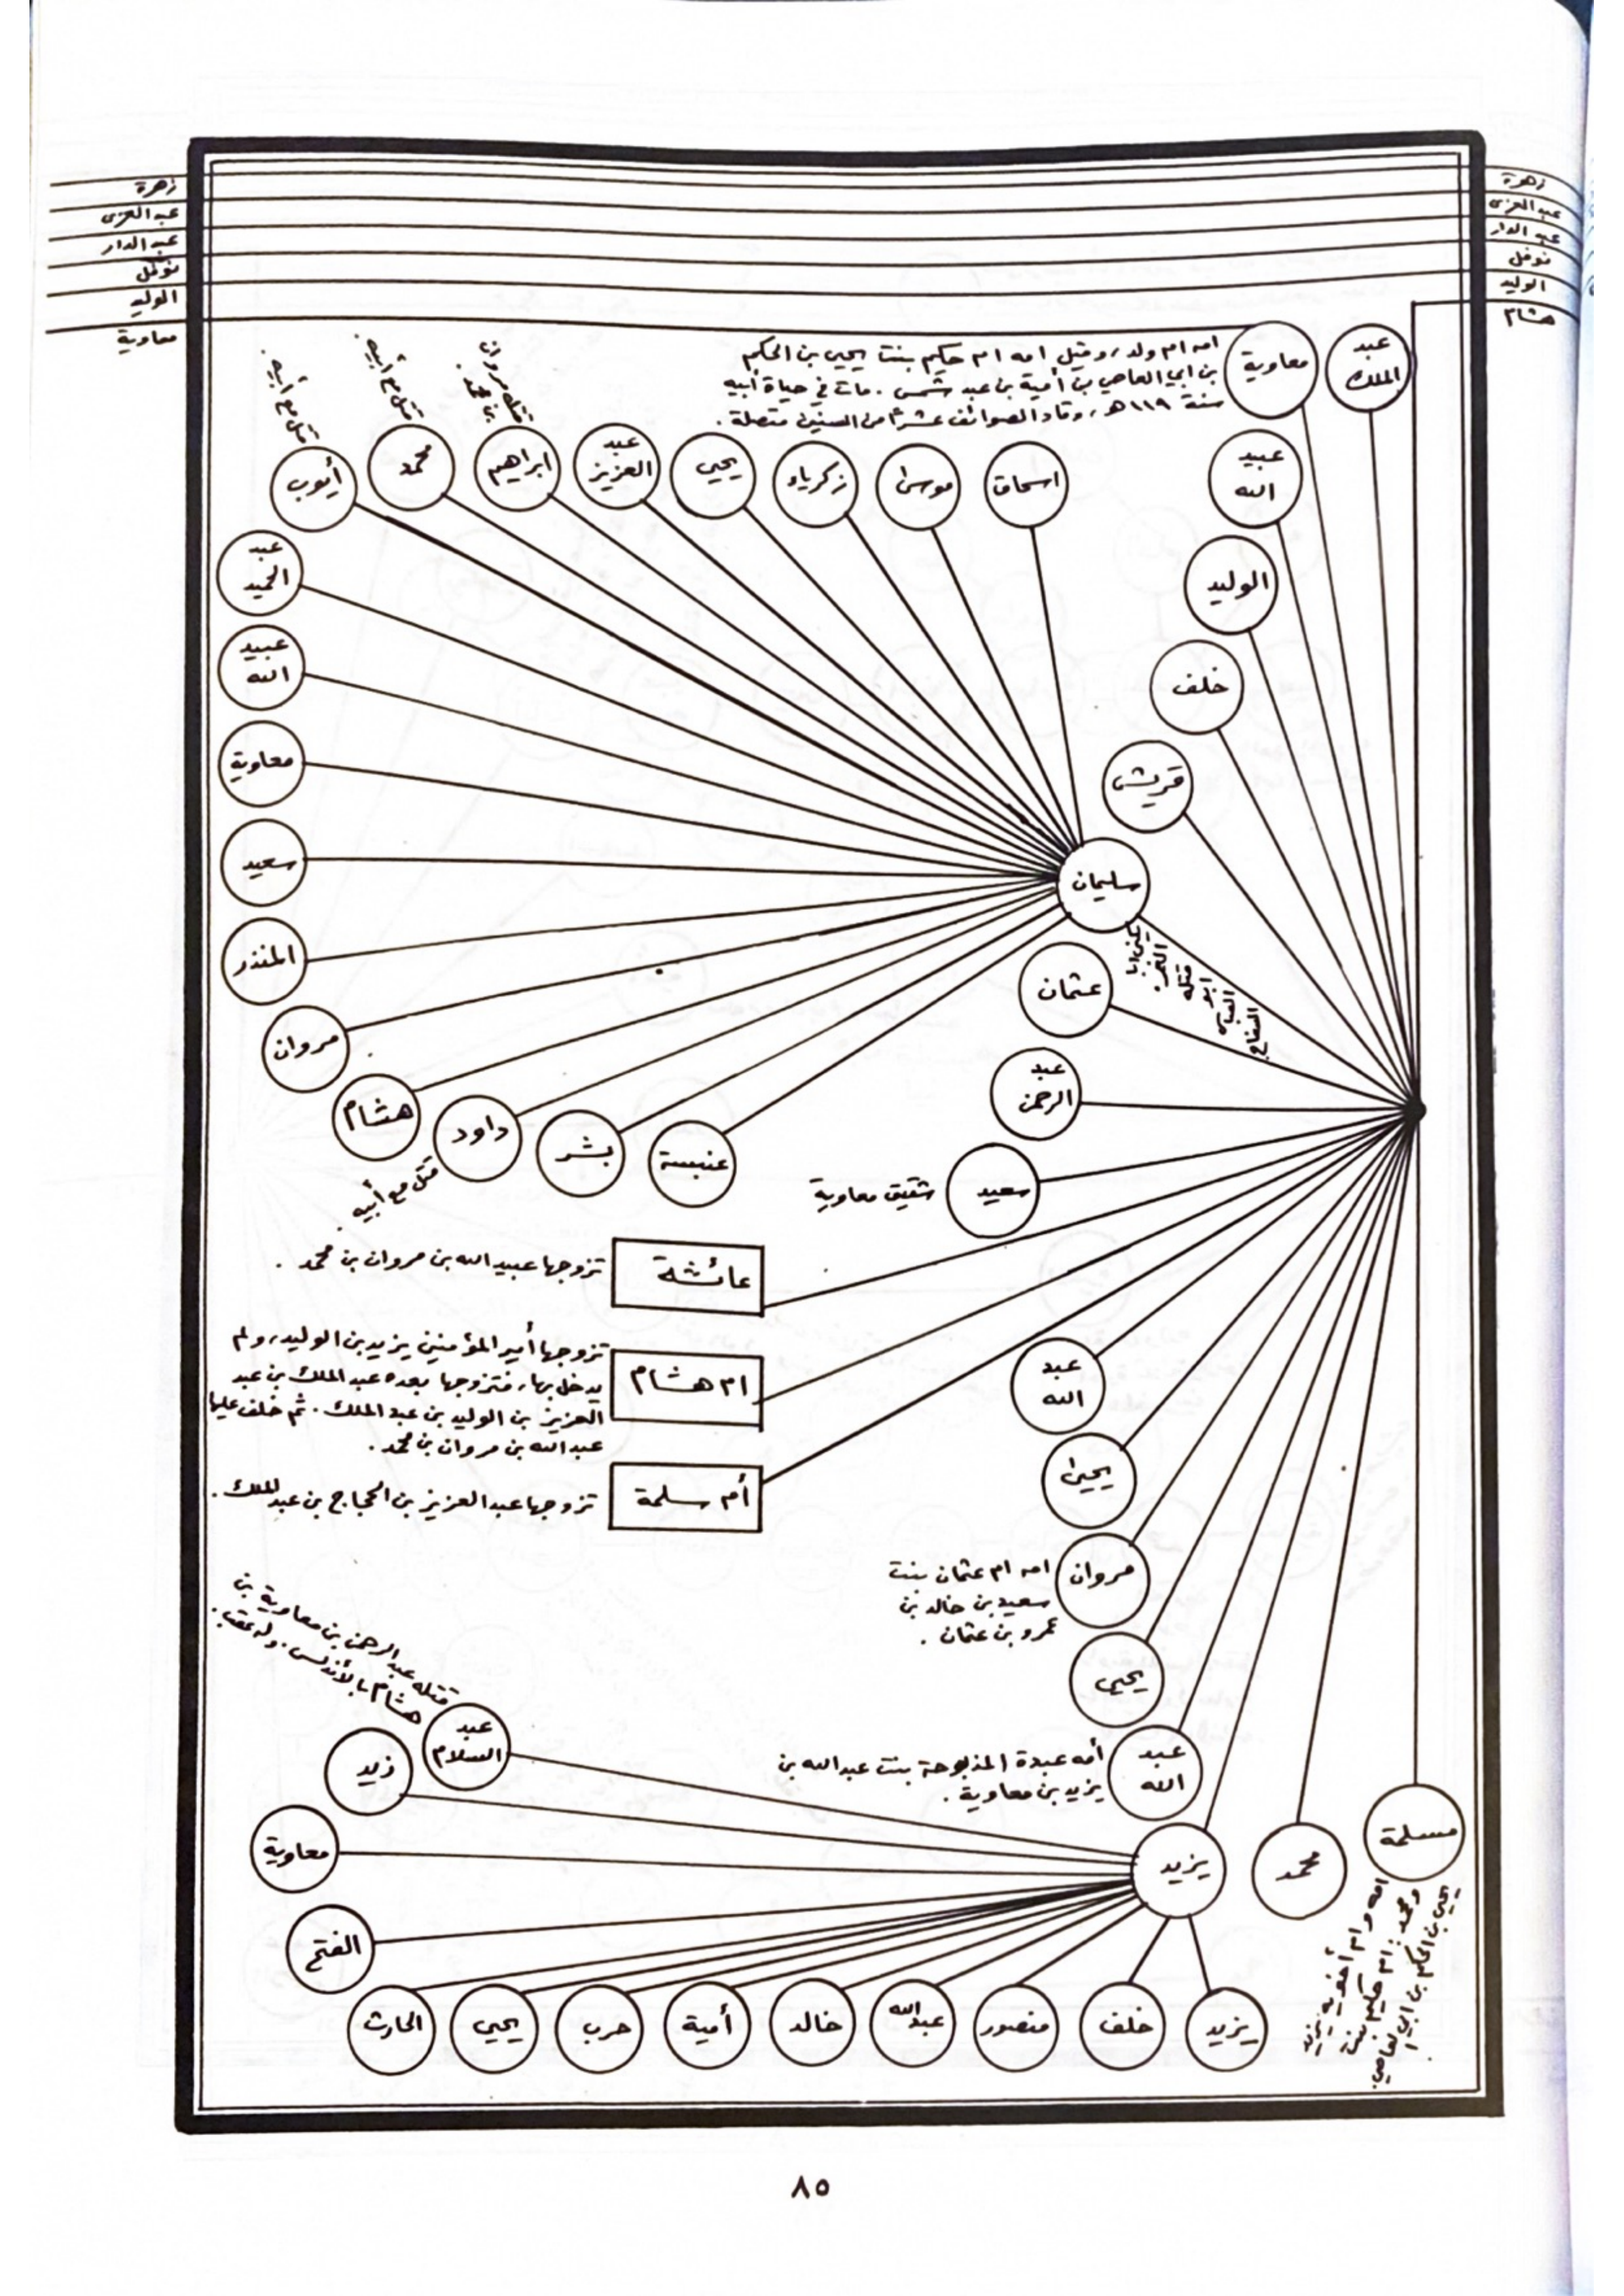 زهرة
عبد العزى
عبد الدار
نوفل
الوليد
هشام
زهرة
عبد العزى
عبد الدار
نوفل
الوليد
معاوية
عبد
الملك
معاوية
امه ام ولد، وقيل امه ام حكيم بنت يحيى بن الحكم
بن ابي العاصي بن أمية بن عبد شمس. مات في حياة أبيه
سنة ١١٩هـ، وقاد الصوائف عشراً من السنين متصلة.
عبيد
الله
الوليد
خلف
قريش
سليمان
يكنى ابا
الغمر.
قتله
ابو
العباس
السفاح
اسحاق
موسى
زكرياء
يحيي
عبد
العزيز
ابراهيم
قتله مروان
بن محمد.
محمد
قتل مع أبيه.
أيوب
قتل مع أبيه.
عبد
الحميد
عبيد
الله
معاوية
سعيد
المنذر
مروان
هشام
داود
قتل مع أبيه.
بشر
عنبسة
عثمان
عبد
الرحمن
سعيد
شقيق معاوية
عائشة
تزوجها عبيد الله بن مروان بن محمد.
ام هشام
تزوجها أمير المؤمنين يزيد بن الوليد، ولم
يدخل بها، فتزوجها بعده عبد الملك بن عبد
العزيز بن الوليد بن عبد الملك. ثم خلف عليها
عبد الله بن مروان بن محمد.
أم سلمة
تزوجها عبد العزيز بن الحجاج بن عبد الملك.
عبد
الله
يحيى
مروان
امه ام عثمان بنت
سعيد بن خالد بن
عمرو بن عثمان.
يحيي
عبد
الله
أمه عبدة المذبوحة بنت عبد الله بن
يزيد بن معاوية.
يزيد
محمد
مسلمة
امه وام أخويه يزيد
ومحمد: ام حكيم بنت
يحيى بن الحكم بن ابي العاصي.
عبد
السلام
قتله عبد الرحمن بن معاوية بن
هشام بالأندلس. وله عقب.
زيد
معاوية
الفتح
الحارث
يحيي
حرب
أمية
خالد
عبد الله
منصور
خلف
يزيد
٨٥